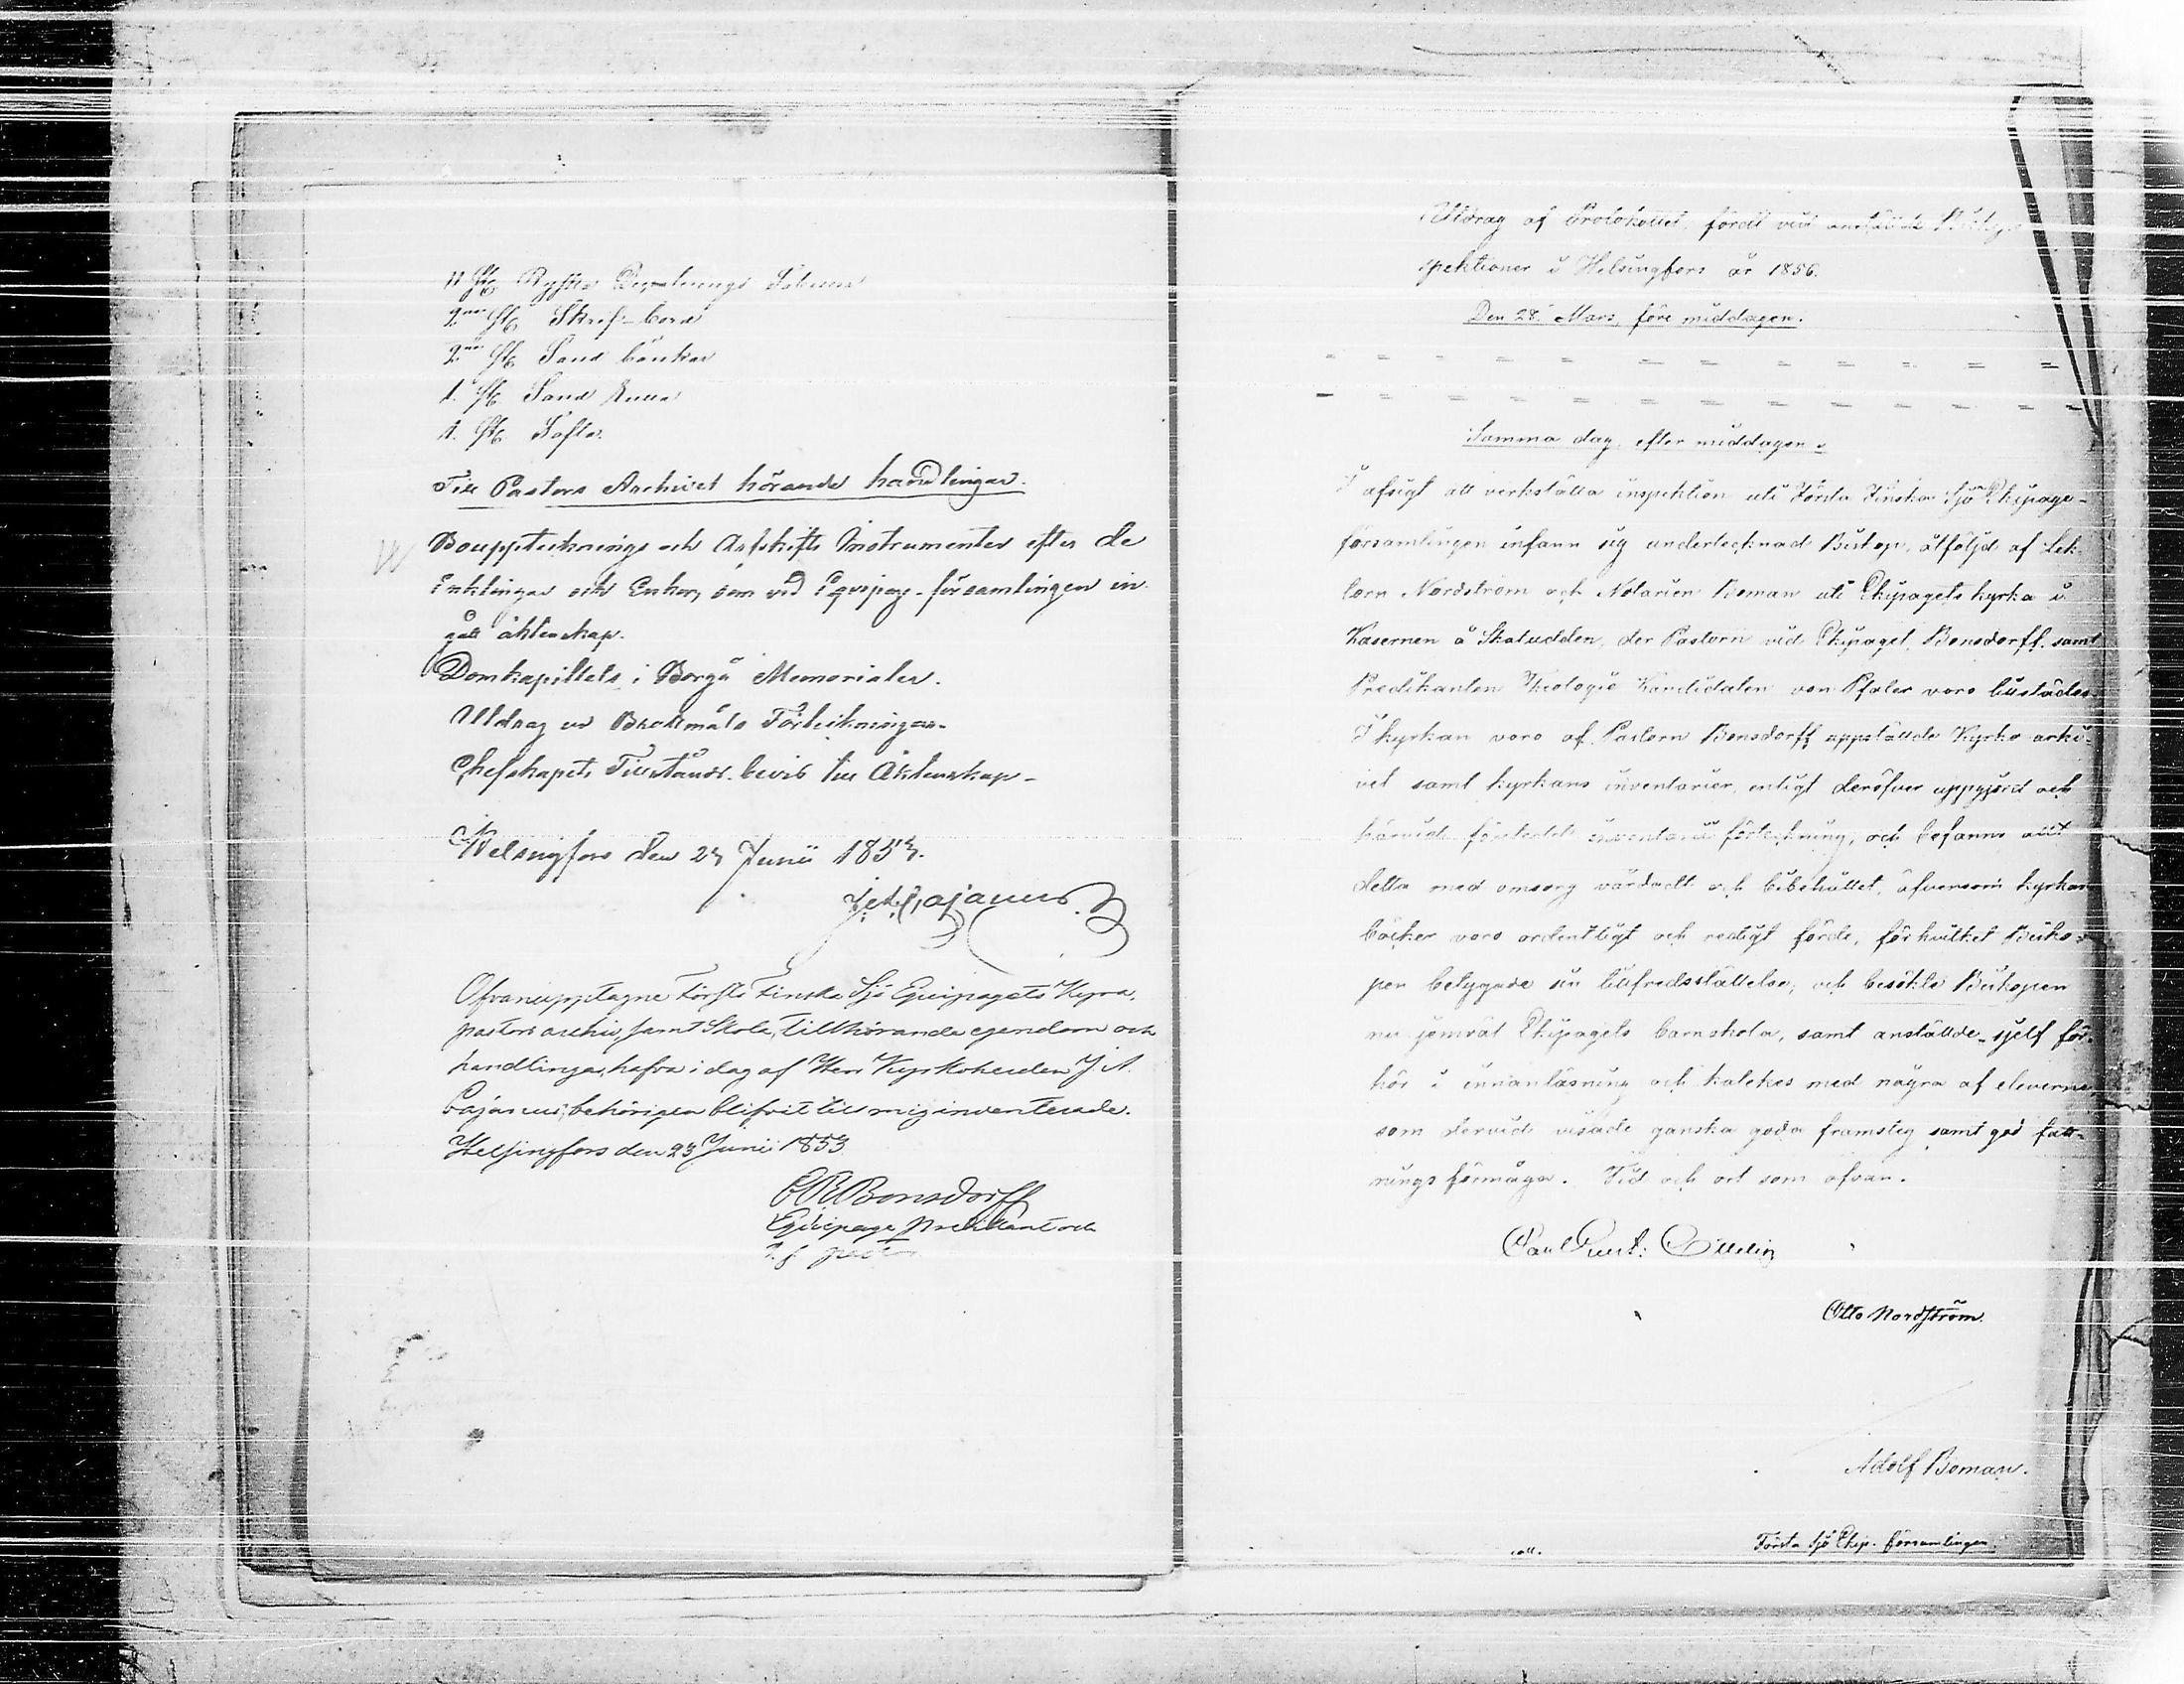 11 St. Ryska
2ne St. Skrif-bord
2ne St. Sand bänkar
1. St. Sand
1. St. Tafla.
Till Pastors Archivet hörande handlingar.
Bouppteknings och Arfskifts Instrumenter efter de
Enklingar och Enkor, som vid Equipage-församlingen in
gått äktenskap.
Domkapitlets i Borgå Memorialer.
Utdrag ur Brottmåls Förteckningar.
Chefskapets Tillstånds-bevis till Äktenskap-
Helsingfors den 23 Junii 1853.
J. A. Cajanus
Ofvanupptagne Första Finska Sjö Equipagets Kyrka,
pastors archiv, samt Skola, tillhörande egendom och
handlingar, hafva i dag af Herr Kyrkoherden J. A.
Cajanus, behörigen blifvit till mig inventerade.
Helsingfors den 23 Junii 1853
C R Bonsdorff
Equipage predikant och
v. f. pastor
Utdrag af Protokollet, fördt vid anstälde
spektioner i Helsingfors år 1856.
Den 28. Mars, före middagen.
Samma dag, efter middagen.
I afsigt att verkställa inspektion uti Första Finska Sjö Ekipage-
församlingen infann sig undertecknad Biskop, åtföljd af Lek-
torn Nordström och Notarien Boman uti Ekipagets kyrka i
Kasernen å Skatudden, der Pastorn vid Ekipaget, Bonsdorff, samt
Predikanten Theologie Kandidaten von Pfaler voro tillstädes.
I kyrkan voro af Pastorn Bonsdorff uppstälde Kyrko arki-
vet samt kyrkans inventarier, enligt deröfver uppgjord och
härvid företedd inventarii förteckning, och befanns allt
detta med omsorg vårdadt och bibehållet, äfvensom kyrkans
böcker voro ordentligt och redigt förde, för hvilket Bisko-
pen betygade sin tillfredsställelse, och besökte Biskopen
nu jemväl Ekipagets barnskola, samt anstälde sjelf för-
hör i innanläsning och katekes med några af eleverna
som dervid visade ganska goda framsteg samt god fatt-
nings förmåga. Tid och ort som ofvan.
Carl Gust: Ottelin
Otto Nordström.
Adolf Boman.
Första Sjö Ekip. församlingen.